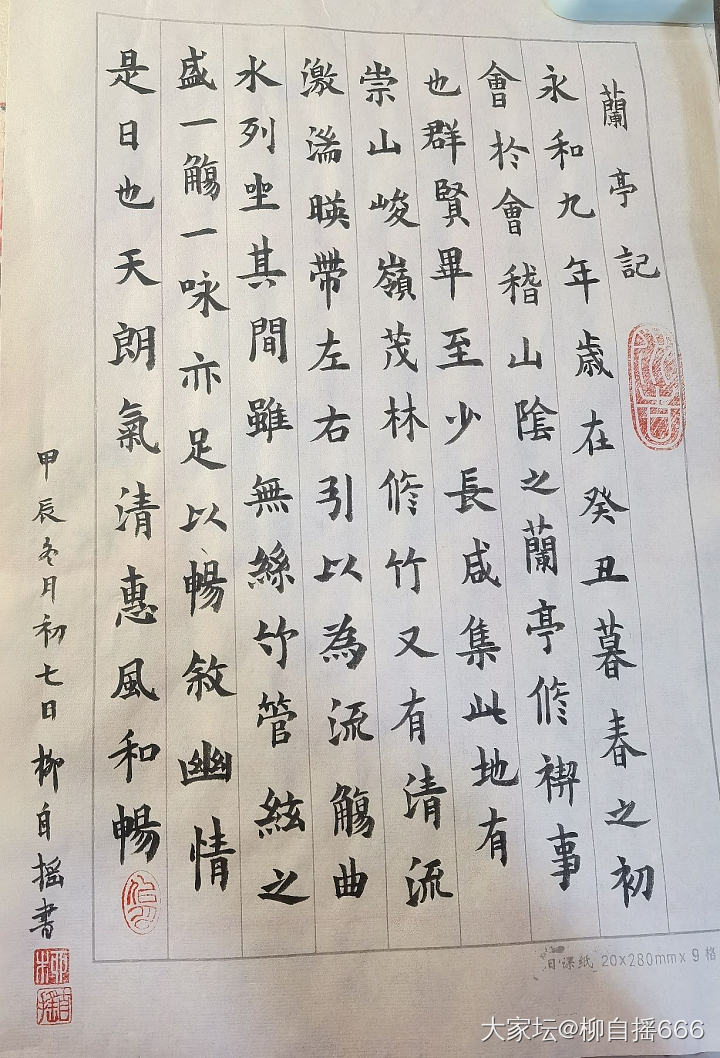 蘭亭記
永和九年歲在癸丑暮春之初
會於會稽山陰之蘭亭修禊事
也群賢畢至少長咸集此地有
崇山峻嶺茂林修竹又有清流
激湍暎帶左右引以為流觴曲
水列坐其間雖無絲竹管絃之
盛一觴一咏亦足以暢敘幽情
是日也天朗氣清惠風和暢
甲辰冬月初七日柳自摇書
柳自摇
日课纸 20x280mmx9格
大家坛@柳自摇666